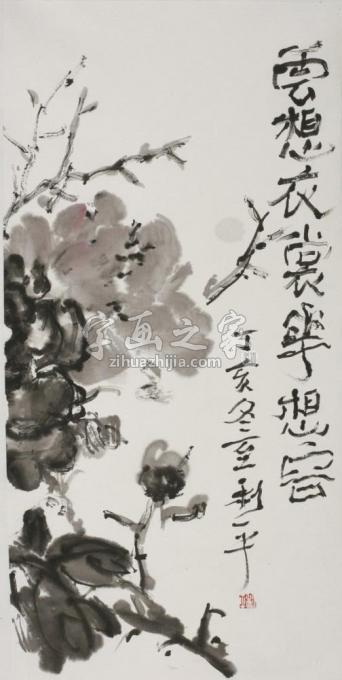 雲想衣裳華想容
丁亥冬至利平
字画之家
zihuazhijia.com